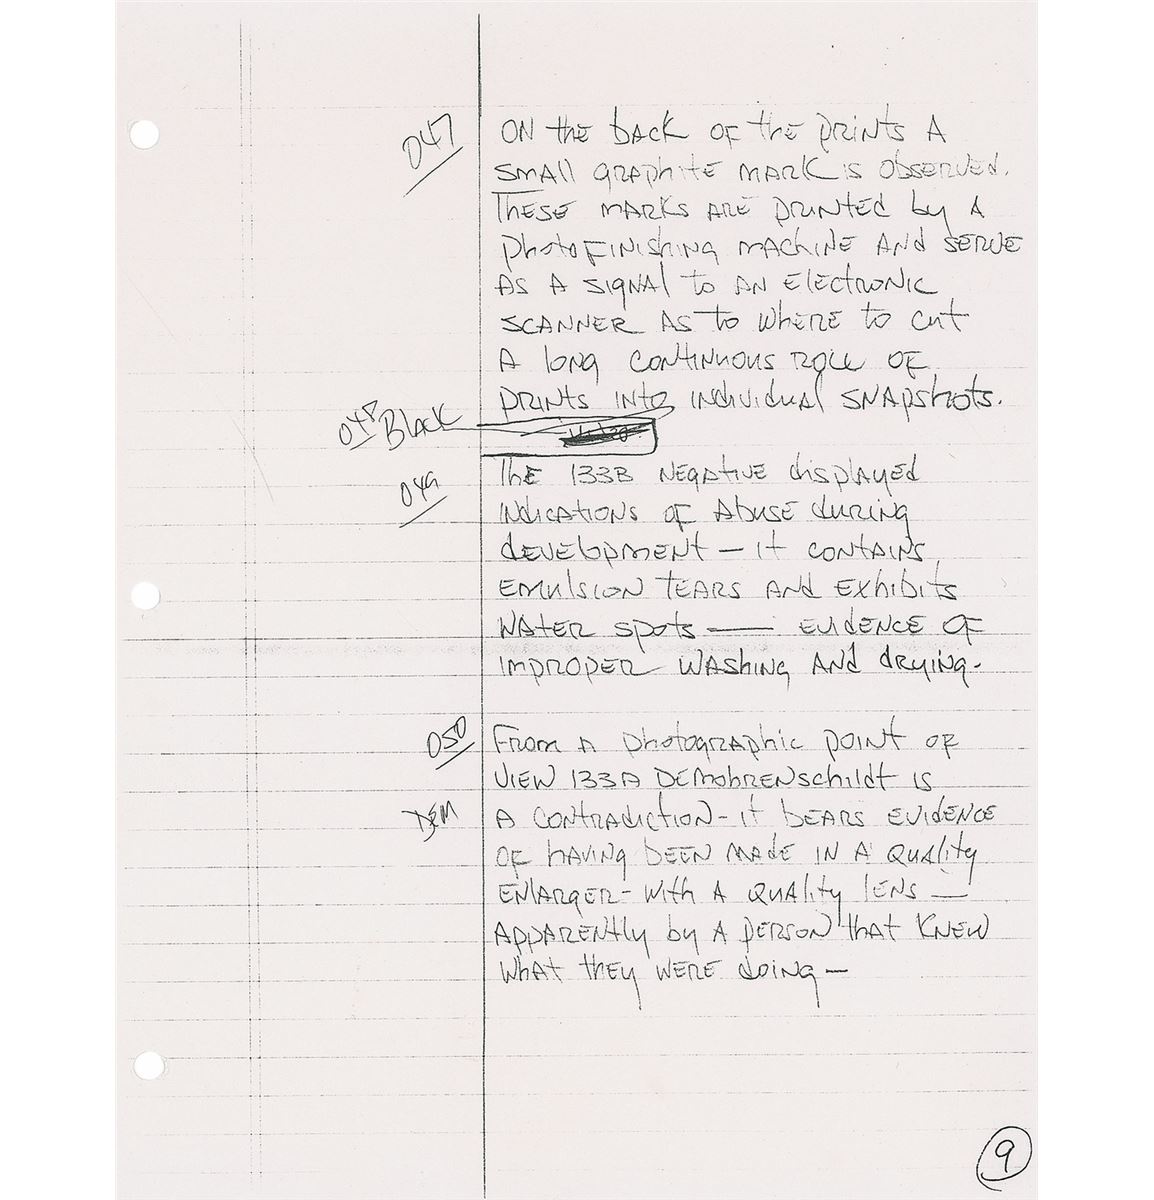 047 ON the back OF the prints A
small graphite MARK is OBSERVED.
THESE MARKS ARE PRINTED by A
photofinishing MACHINE AND SERVE
AS A SIGNAL to AN Electronic
SCANNER AS to WHERE to cut
A long CONTINUOUS ROLL OF
PRINTS INTO INDIVIDUAL SNAPSHOTS.
048 Black
049 The 133B NEGATIVE displayed
INDICATIONS OF ABUSE during
development — it CONTAINS
EMULSION TEARS AND EXHIBITS
WATER spots — EVIDENCE OF
IMPROPER WASHING AND drying-
050 From A photographic POINT OF
VIEW 133A DEMOHRENSCHILDT is
DEM A CONTRADICTION - it BEARS EVIDENCE
OF HAVING BEEN MADE IN A QUALITY
ENLARGER - with A QUALITY LENS —
APPARENTLY by A PERSON that KNEW
WHAT they WERE doing —
9